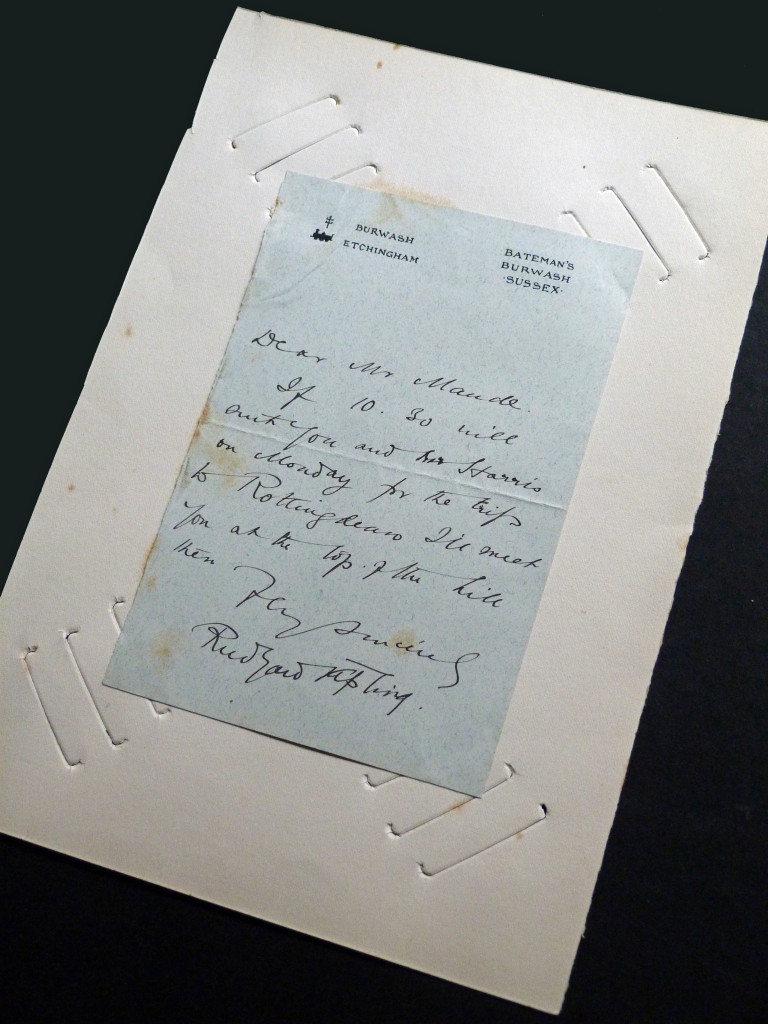 BURWASH
ETCHINGHAM
BATEMAN'S
BURWASH
·SUSSEX·
Dear Mr Maude.
If 10.30 will
suit you and Harris
on Monday for the trip
to Rottingdean I'll meet
you at the top of the hill
then
Very sincerely
Rudyard Kipling.